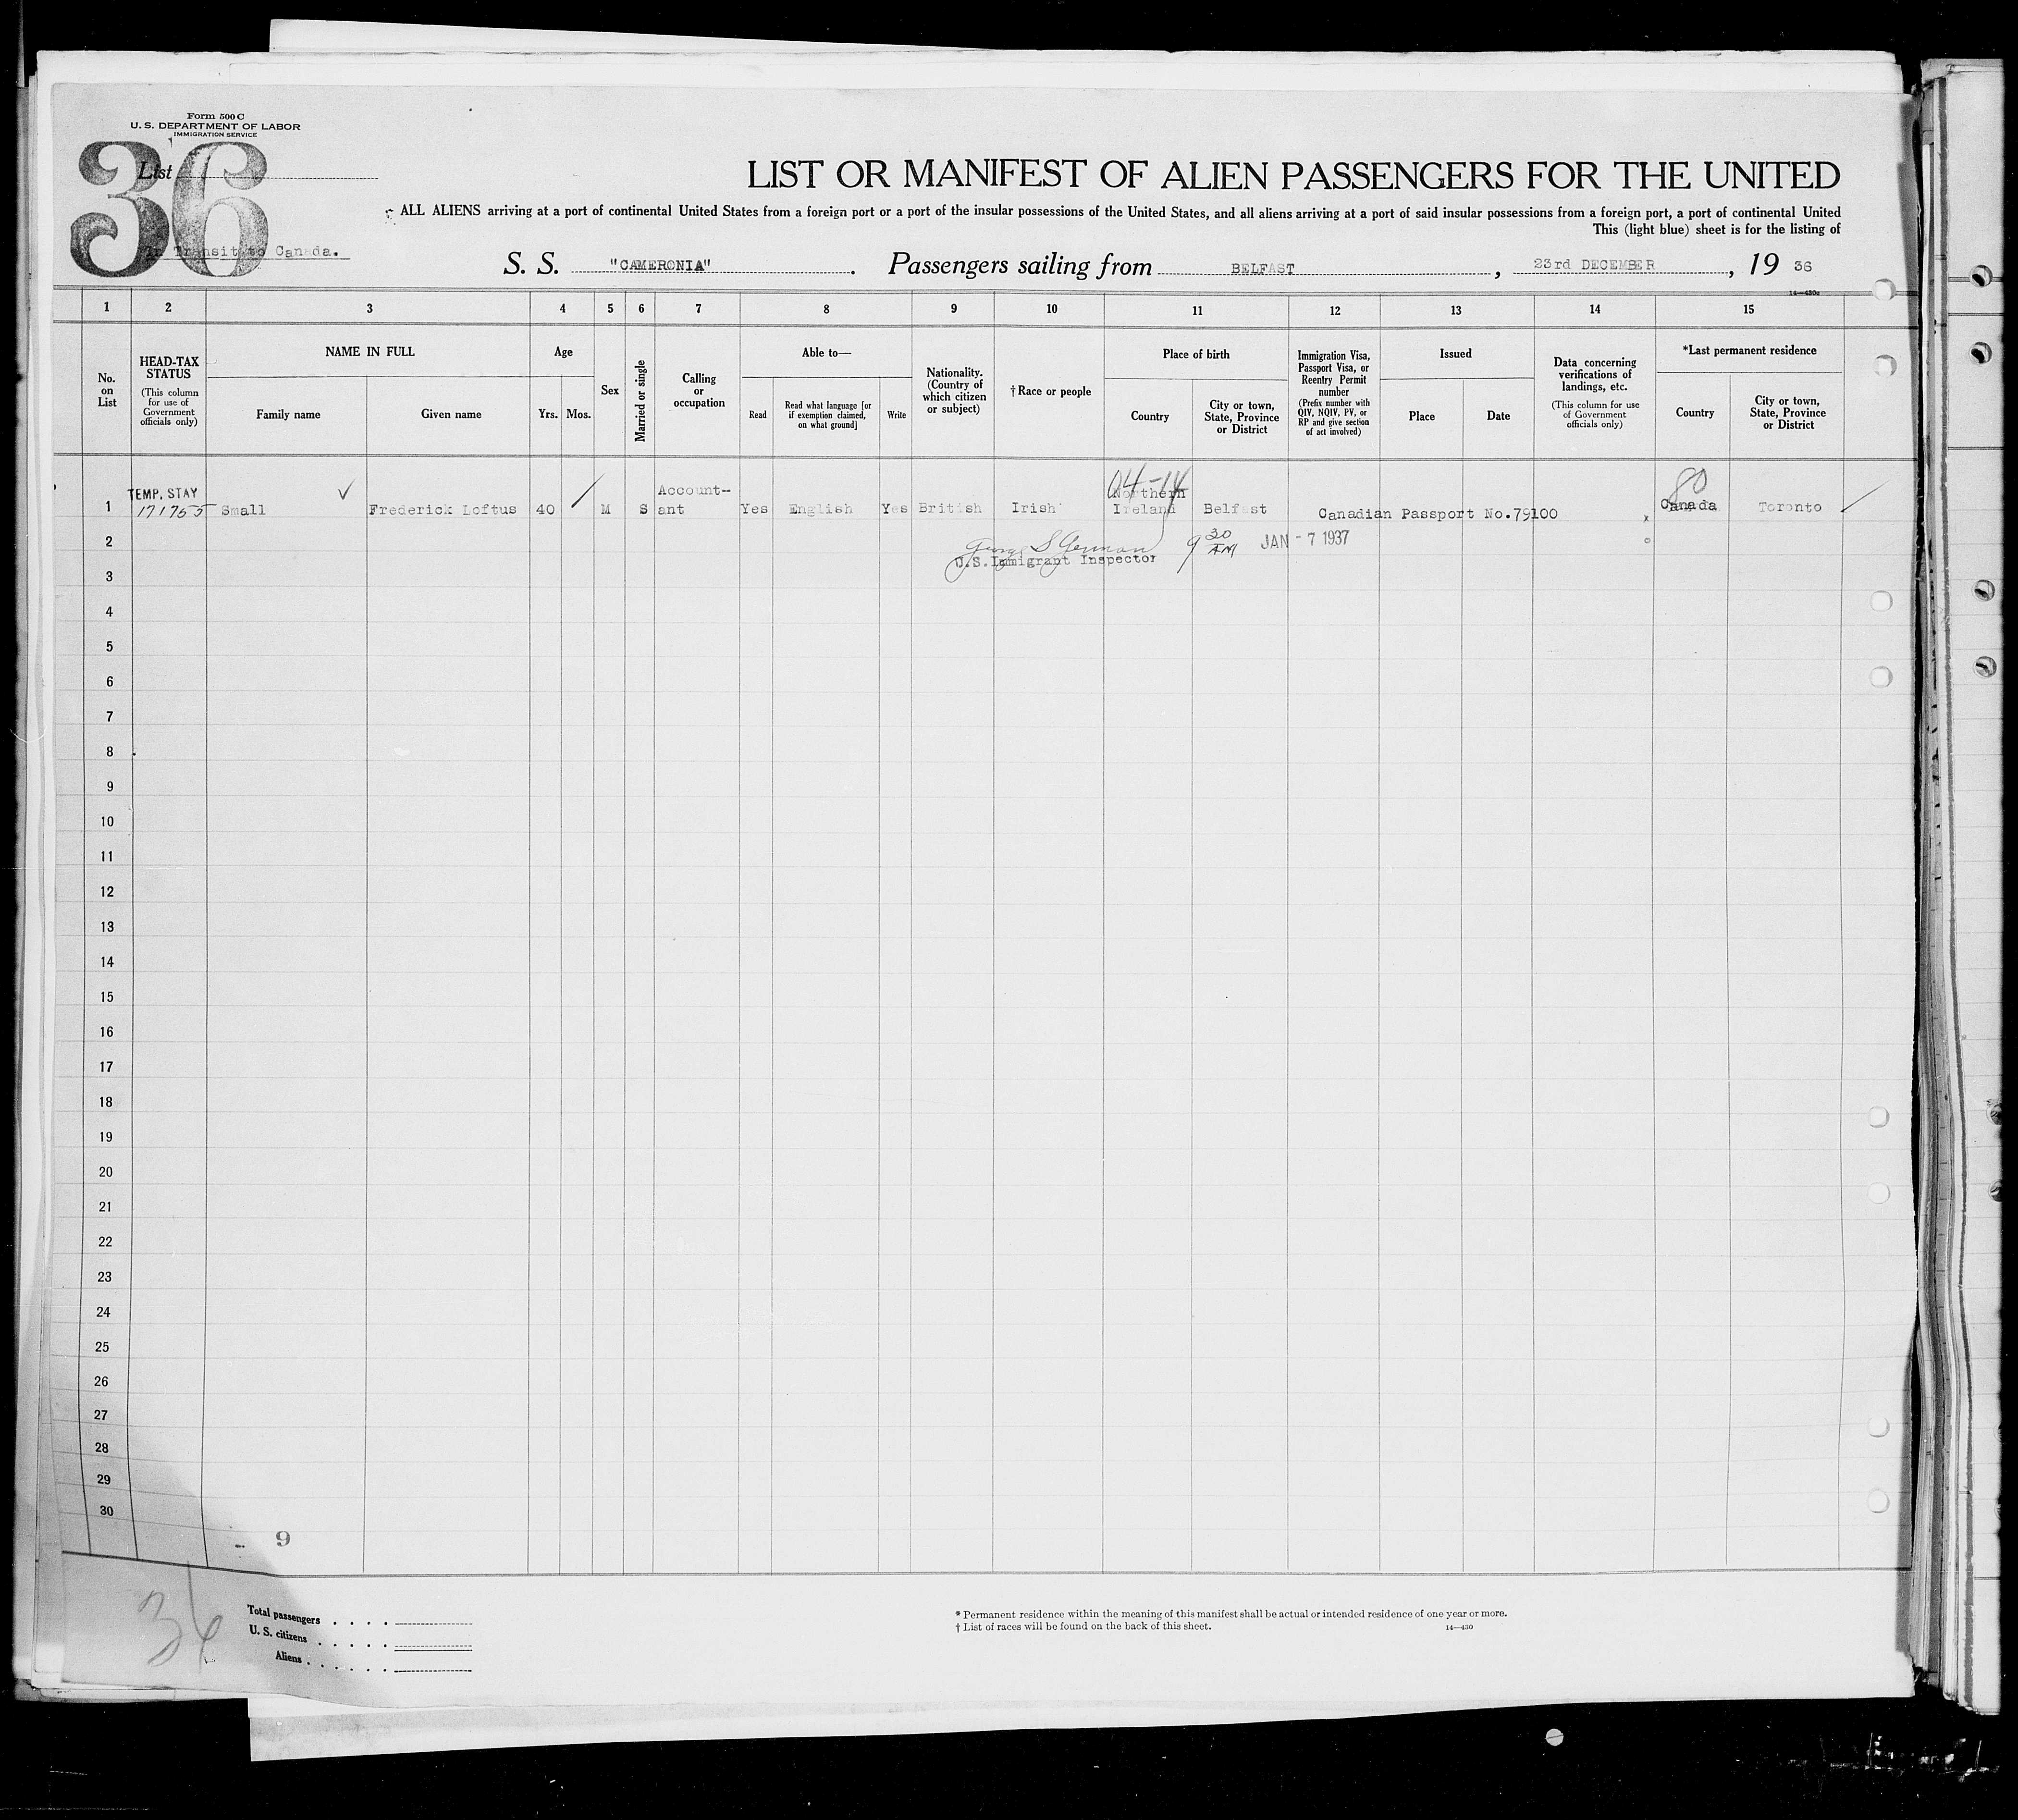 Form 500 C
U. S. DEPARTMENT OF LABOR
IMMIGRATION SERVICE
36
List
In Transit to Canada.
LIST OR MANIFEST OF ALIEN PASSENGERS FOR THE UNITED
ALL ALIENS arriving at a port of continental United States from a foreign port or a port of the insular possessions of the United States, and all aliens arriving at a port of said insular possessions from a foreign port, a port of continental United
This (light blue) sheet is for the listing of
S. S. "CAMERONIA" . Passengers sailing from BELFAST , 23rd DECEMBER , 19 36
14—430c
1 2 3 4 5 6 7 8 9 10 11 12 13 14 15
No. on List
HEAD-TAX STATUS
(This column for use of Government officials only)
NAME IN FULL
Family name
Given name
Age
Yrs.
Mos.
Sex
Married or single
Calling or occupation
Able to—
Read
Read what language [or if exemption claimed, on what ground]
Write
Nationality. (Country of which citizen or subject)
†Race or people
Place of birth
Country
City or town, State, Province or District
Immigration Visa, Passport Visa, or Reentry Permit number
(Prefix number with QIV, NQIV, PV, or RP and give section of act involved)
Issued
Place
Date
Data concerning verifications of landings, etc.
(This column for use of Government officials only)
*Last permanent residence
Country
City or town, State, Province or District
TEMP. STAY
Account-
04-14
Northern
80
1 171755 Small Frederick Loftus 40 M S ant Yes English Yes British Irish Ireland Belfast Canadian Passport No.79100 x Canada Toronto
2 George S German 9 30 AM JAN - 7 1937
U.S.Immigrant Inspector
3
4
5
6
7
8
9
10
11
12
13
14
15
16
17
18
19
20
21
22
23
24
25
26
27
28
29
30
9
36
Total passengers . . . .
U. S. citizens . . . . .
Aliens . . . . . .
* Permanent residence within the meaning of this manifest shall be actual or intended residence of one year or more.
† List of races will be found on the back of this sheet.
14—430